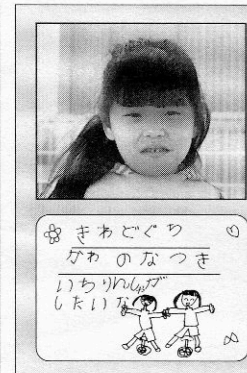 きわどぐち
かわ のなつき
いちりんしゃが
したいな